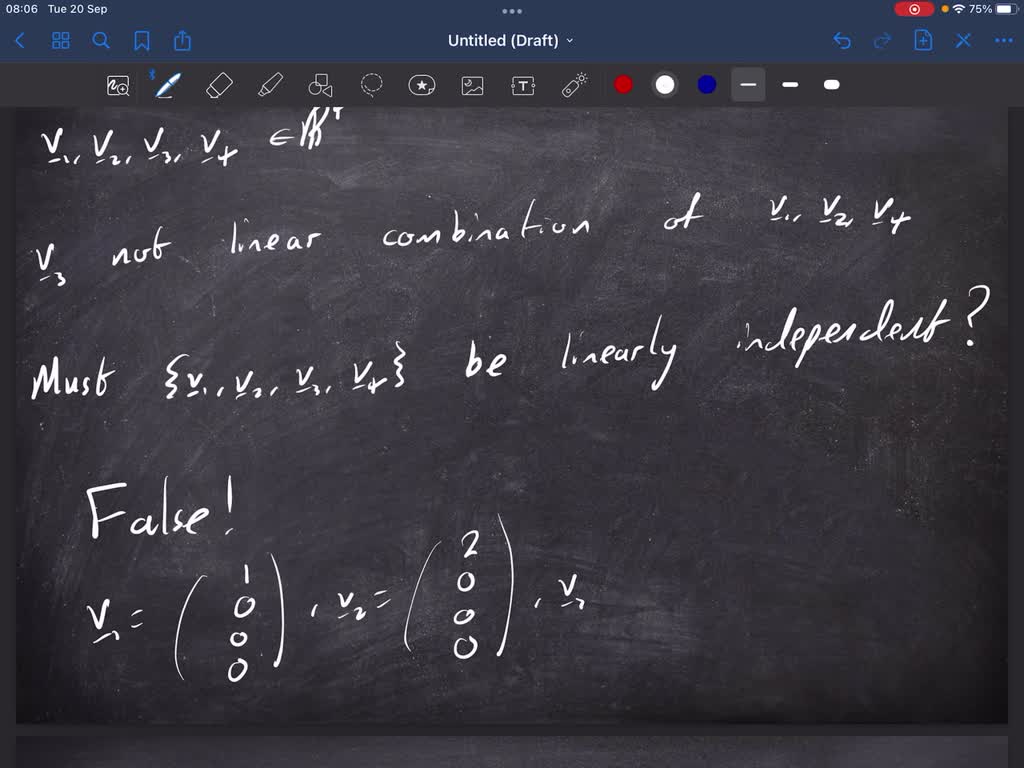 08:06 Tue 20 Sep 75%
Untitled (Draft)
v₁, v₂, v₃, v₄ ∈ ℝ⁴
v₃ not linear combination of v₁, v₂, v₄
Must {v₁, v₂, v₃, v₄} be linearly independent?
False!
v₁ = (1 0 0 0), v₂ = (2 0 0 0), v₃